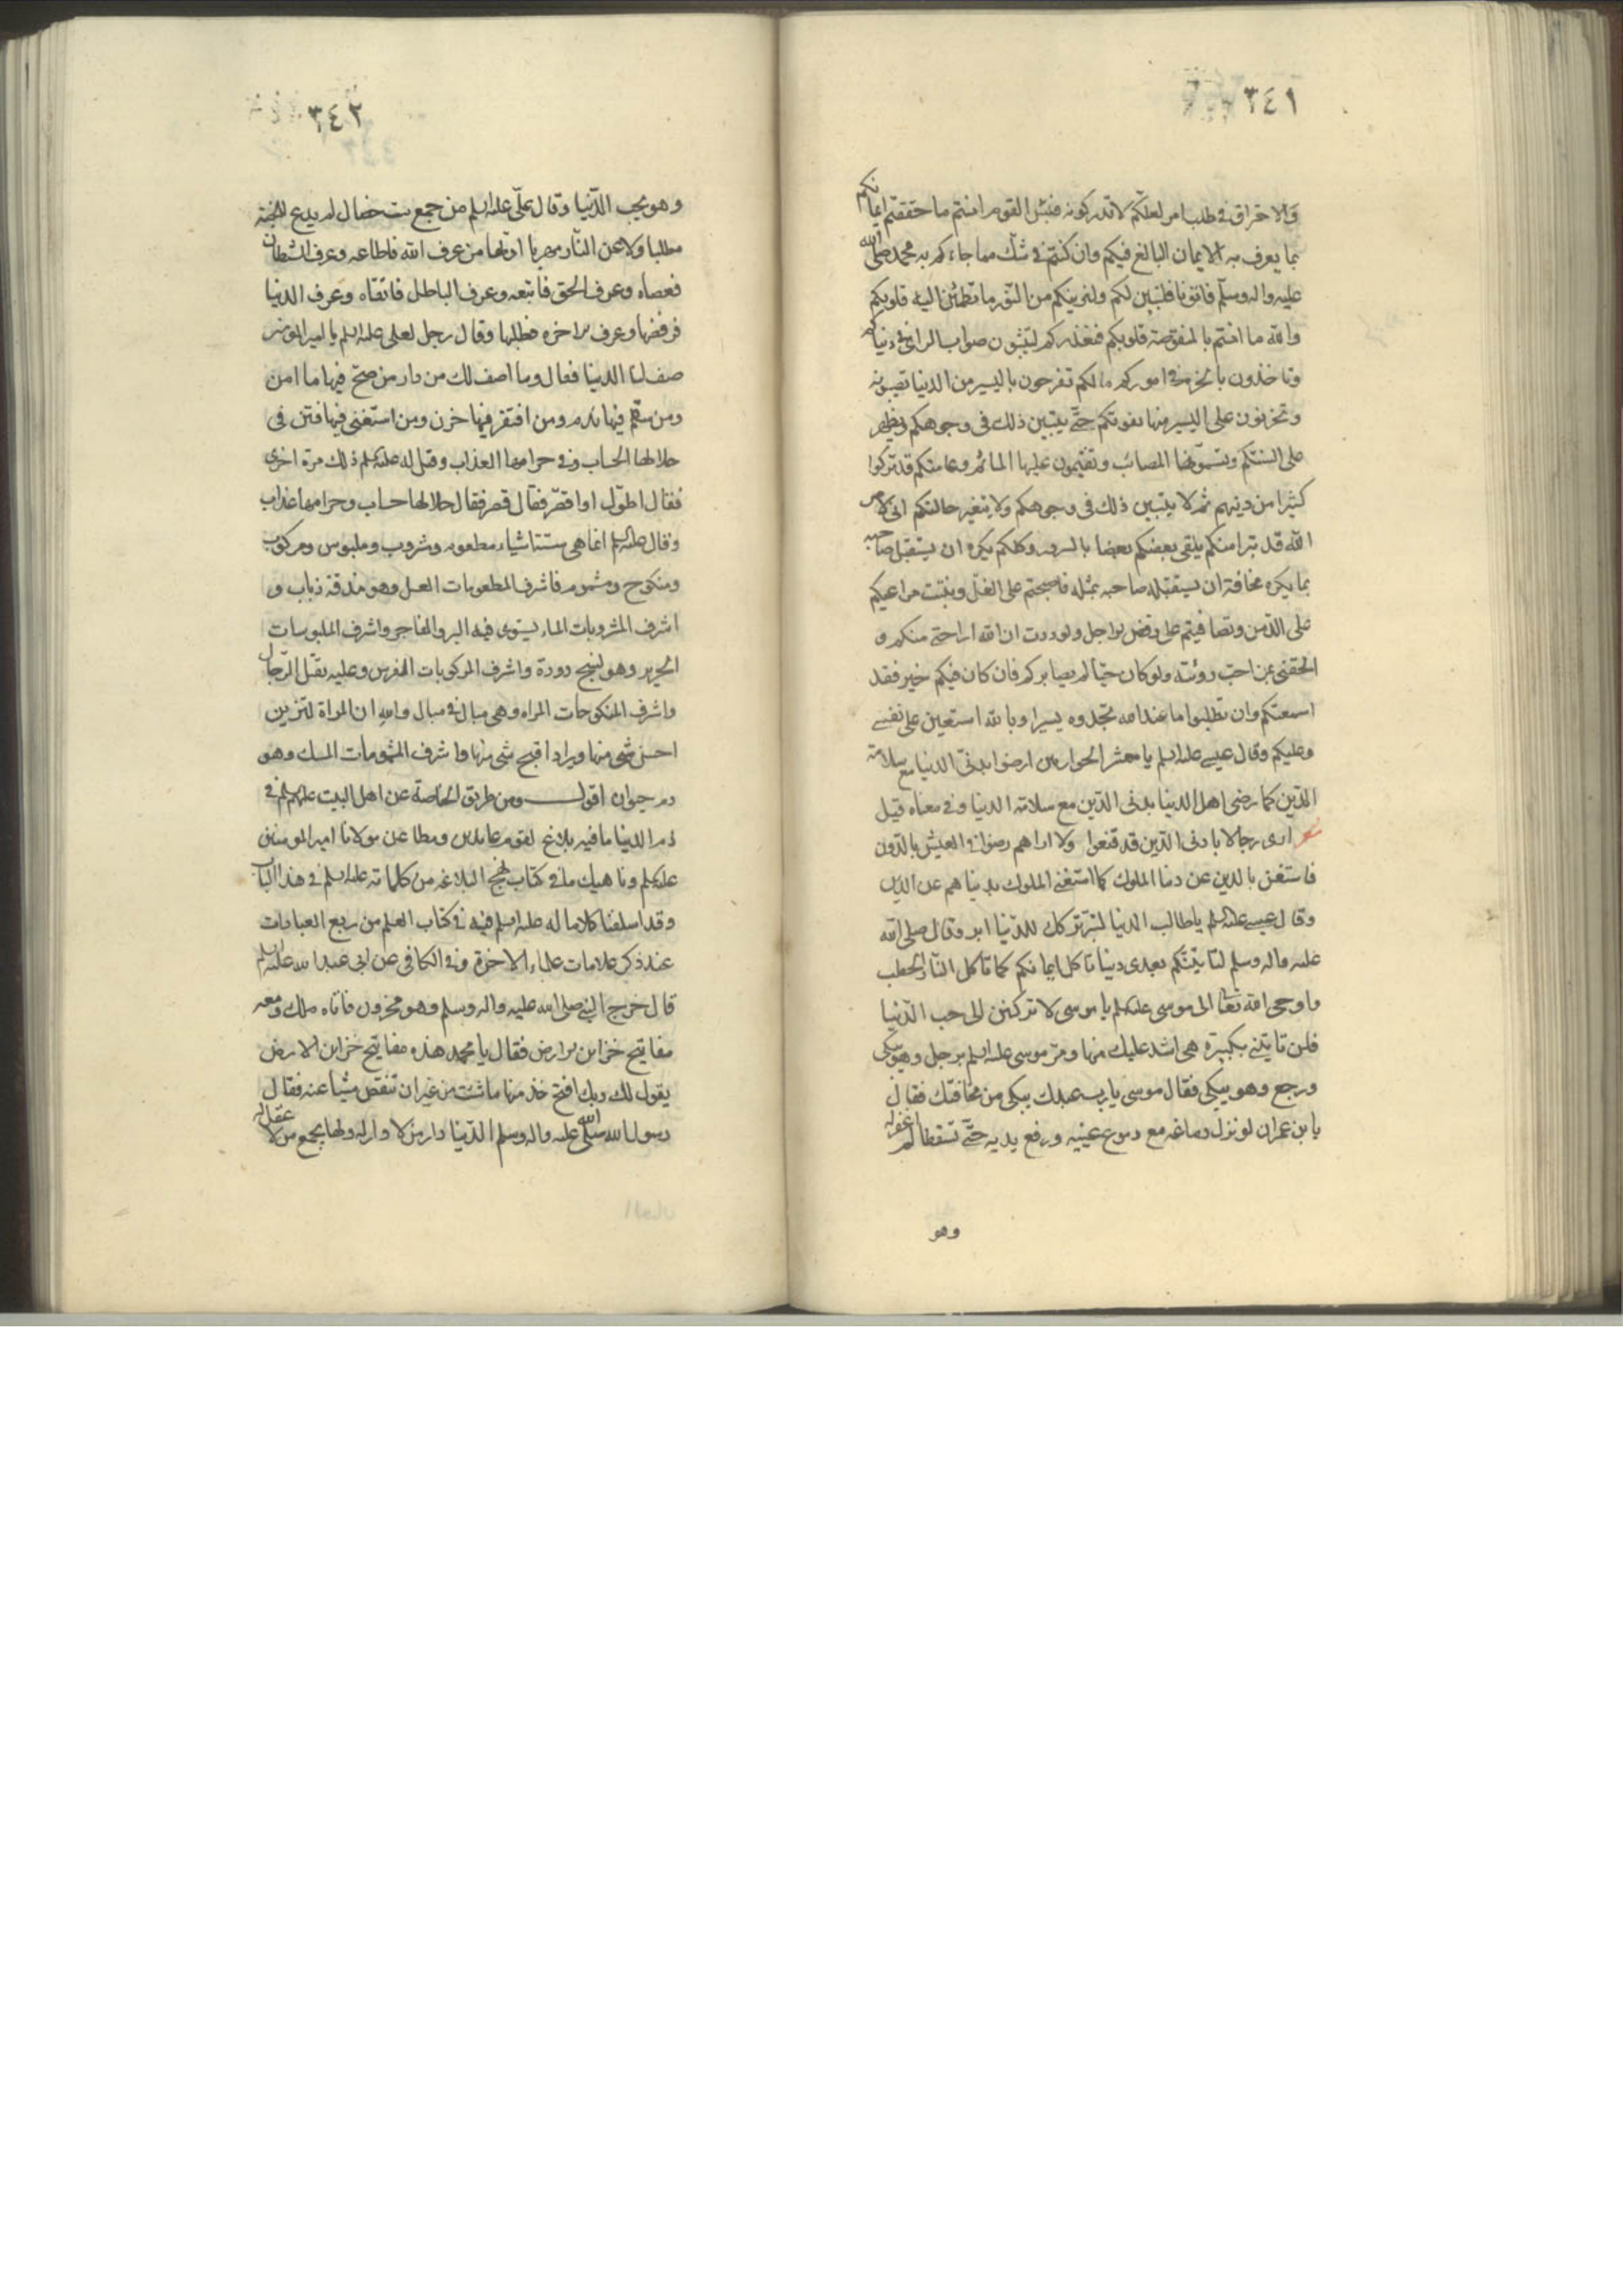 ٣٤١
والاحتراق في طلب امر لعلكم لا تدركونه فبئس القوم انتم ما حققتم ايمانكم
بما يعرف به الايمان البالغ فيكم وان كنتم في شك مما جاءكم به محمد صلى الله
عليه واله وسلم فاتونا فلنبين لكم ولنريكم من النور ما تطمئن اليه قلوبكم
والله ما انتم بالمنقوصة قلوبكم فنعذركم لتبينون صواب الراي في دنياكم
وتاخذون بالحزم في اموركم ما لكم تفرحون باليسير من الدنيا تصيبونه
وتحزنون على اليسير منها يفوتكم حتى يتبين ذلك في وجوهكم ويظهر
على السنتكم وتسمونها المصائب وتقيمون عليها الماتم وعامتكم قد تركوا
كثيرا من دينهم ثم لا يتبين ذلك في وجوهكم ولا يتغير حالتكم انى لارى
الله قد تبرا منكم يلقى بعضكم بعضا بالسرور وكلكم يكره ان يستقبل صاحبه
بما يكره مخافة ان يستقبله صاحبه بمثله فاصبحتم على الغل ونبتت مراعيكم
على الدمن وتصافيتم على رفض الاجل ولوددت ان الله اراحني منكم و
الحقني بمن احب رؤيته ولو كان حيا لم يصابركم فان كان فيكم خير فقد
اسمعتكم وان تطلبوا ما عند الله تجدوه يسيرا وبالله استعين على نفسي
وعليكم وقال عيسى عليه السلم يا معشر الحواريين ارضوا بدنى الدنيا مع سلامة
الدين كما رضى اهل الدنيا بدنى الدين مع سلامة الدنيا وفي معناه قيل
شعر ارى رجالا بادنى الدين قد قنعوا ولا اراهم رضوا في العيش بالدون
فاستغن بالدين عن دنيا الملوك كما استغنى الملوك بدنياهم عن الدين
وقال عيسى عليه السلم يا طالب الدنيا لتبر تركك للدنيا ابر وقال صلى الله
عليه واله وسلم لتاتينكم بعدى دنيا تاكل ايمانكم كما تاكل النار الحطب
واوحى الله تعالى الى موسى عليه السلم يا موسى لا تركنن الى حب الدنيا
فلن تاتينى بكبيرة هى اشد عليك منها ومر موسى عليه السلم برجل وهو يبكى
ورجع وهو يبكى فقال موسى يا رب عبدك يبكى من مخافتك فقال
يا بن عمران لو نزل دماغه مع دموع عينيه ورفع يديه حتى تسقطا لم اغفر له
وهو
٣٤٢
وهو يحب الدنيا وقال على عليه السلم من جمع ست خصال لم يدع للجنة
مطلبا ولا عن النار مهربا اولها من عرف الله فاطاعه وعرف الشيطان
فعصاه وعرف الحق فاتبعه وعرف الباطل فاتقاه وعرف الدنيا
فرفضها وعرف الاخره فطلبها وقال رجل لعلى عليه السلم يا امير المومنين
صف لنا الدنيا فقال وما اصف لك من دار من صح فيها ما امن
ومن سقم فيها ندم ومن افتقر فيها حزن ومن استغنى فيها فتن فى
حلالها الحساب وفي حرامها العذاب وقيل له عليه السلم ذلك مرة اخرى
فقال اطول او اقصر فقال قصر فقال حلالها حساب وحرامها عذاب
وقال عليه السلم انما هى ستة اشياء مطعوم ومشروب وملبوس ومركوب
ومنكوح ومشموم فاشرف المطعومات العسل وهو مذقة ذباب و
اشرف المشروبات الماء يستوى فيه البر والفاجر واشرف الملبوسات
الحرير وهو نسج دودة واشرف المركوبات الفرس وعليه يقتل الرجال
واشرف المنكوحات المراه وهى مبال في مبال والله ان المراة لتزين
احسن شى منها ويراد اقبح شى منها واشرف المشمومات المسك وهو
دم حيوان اقول ومن طريق الخاصة عن اهل البيت عليهم السلم في
ذم الدنيا ما فيه بلاغ لقوم عابدين ومطا عن مولانا امير المومنين
عليه السلم وناهيك ما في كتاب نهج البلاغه من كلماته عليه السلم في هذا الباب
وقد اسلفنا كلاما له عليه السلم فيه في كتاب العلم من ربع العبادات
عند ذكر علامات علماء الاخرة وفي الكافى عن ابى عبد الله عليه السلم
قال خرج النبي صلى الله عليه واله وسلم وهو محزون فاتاه ملك ومعه
مفاتيح خزاين الارض فقال يا محمد هذه مفاتيح خزاين الارض
يقول لك ربك افتح خذ منها ما شئت من غير ان تنقص شيئا عنه فقال
رسول الله صلى الله عليه واله وسلم الدنيا دار من لا دار له ولها يجمع من لا عقل له